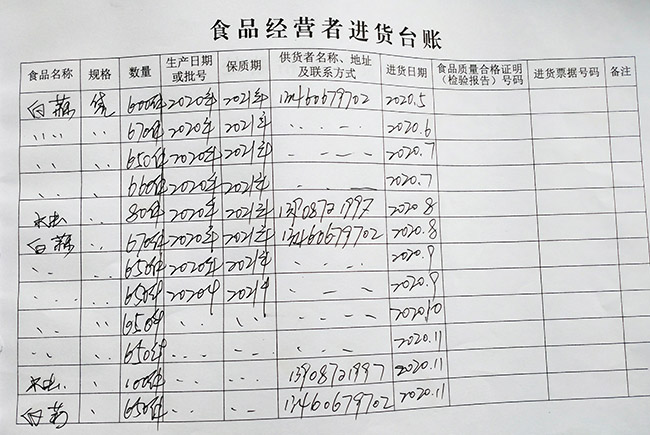 食品经营者进货台账
食品名称 规格 数量 生产日期或批号 保质期 供货者名称、地址及联系方式 进货日期 食品质量合格证明(检验报告)号码 进货票据号码 备注
白 600件 2020年 2021年 13460679702 2020.5
〃 〃 670件 2020年 2021年 〃 2020.6
〃 〃 650件 2020年 2021年 〃 2020.7
〃 〃 660件 2020年 2021年 〃 2020.7
80件 2020年 2021年 13908721997 2020.8
白 〃 670件 2020年 2021年 13460679702 2020.8
〃 〃 650件 2020年 2021年 〃 2020.9
〃 〃 650件 2020年 2021年 〃 2020.9
〃 〃 650件 〃 〃 〃 2020.10
〃 〃 650件 〃 〃 〃 2020.11
〃 100件 〃 〃 13908721997 2020.11
白 〃 650件 〃 〃 13460679702 2020.11